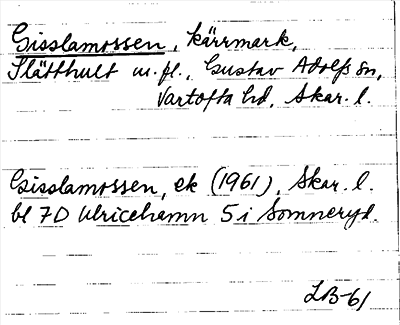 Gisslamossen, kärrmark,
Slätthult m.fl., Gustav Adolfs sn,
Vartofta hd, Skar. l.
Gisslamossen, ek (1961), Skar. l.
bl 7D Ulricehamn 5 i Somneryd.
LB-61